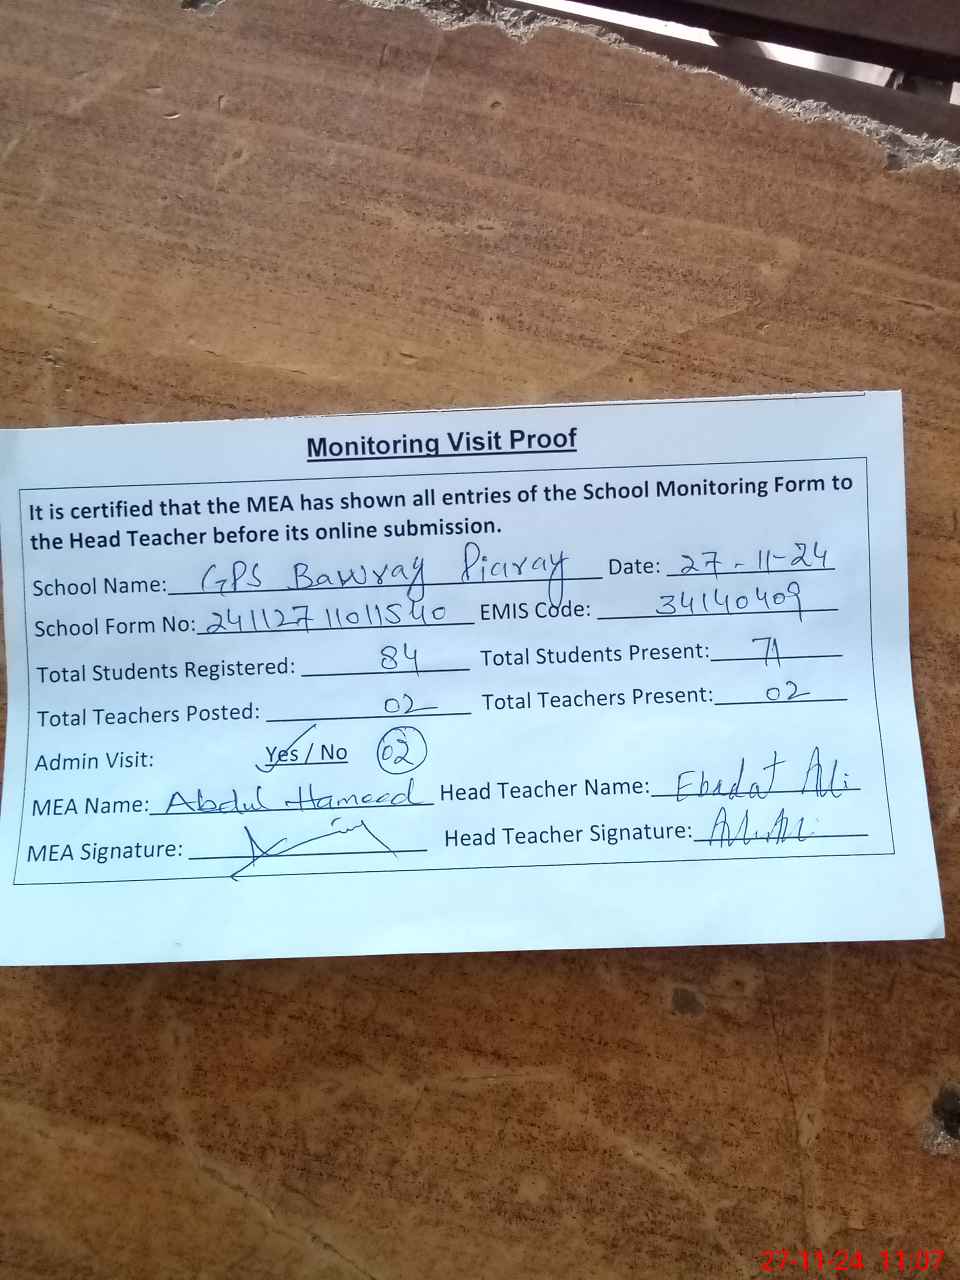 Monitoring Visit Proof
It is certified that the MEA has shown all entries of the School Monitoring Form to
the Head Teacher before its online submission.
School Name: GPS Bawray Piaray Date: 27-11-24
School Form No: 24112711011540 EMIS Code: 34140409
Total Students Registered: 84 Total Students Present: 71
Total Teachers Posted: 02 Total Teachers Present: 02
Admin Visit: Yes / No 02
MEA Name: Abdul Hameed Head Teacher Name: Ebadat Ali
MEA Signature: Head Teacher Signature:
27-11-24 11:07